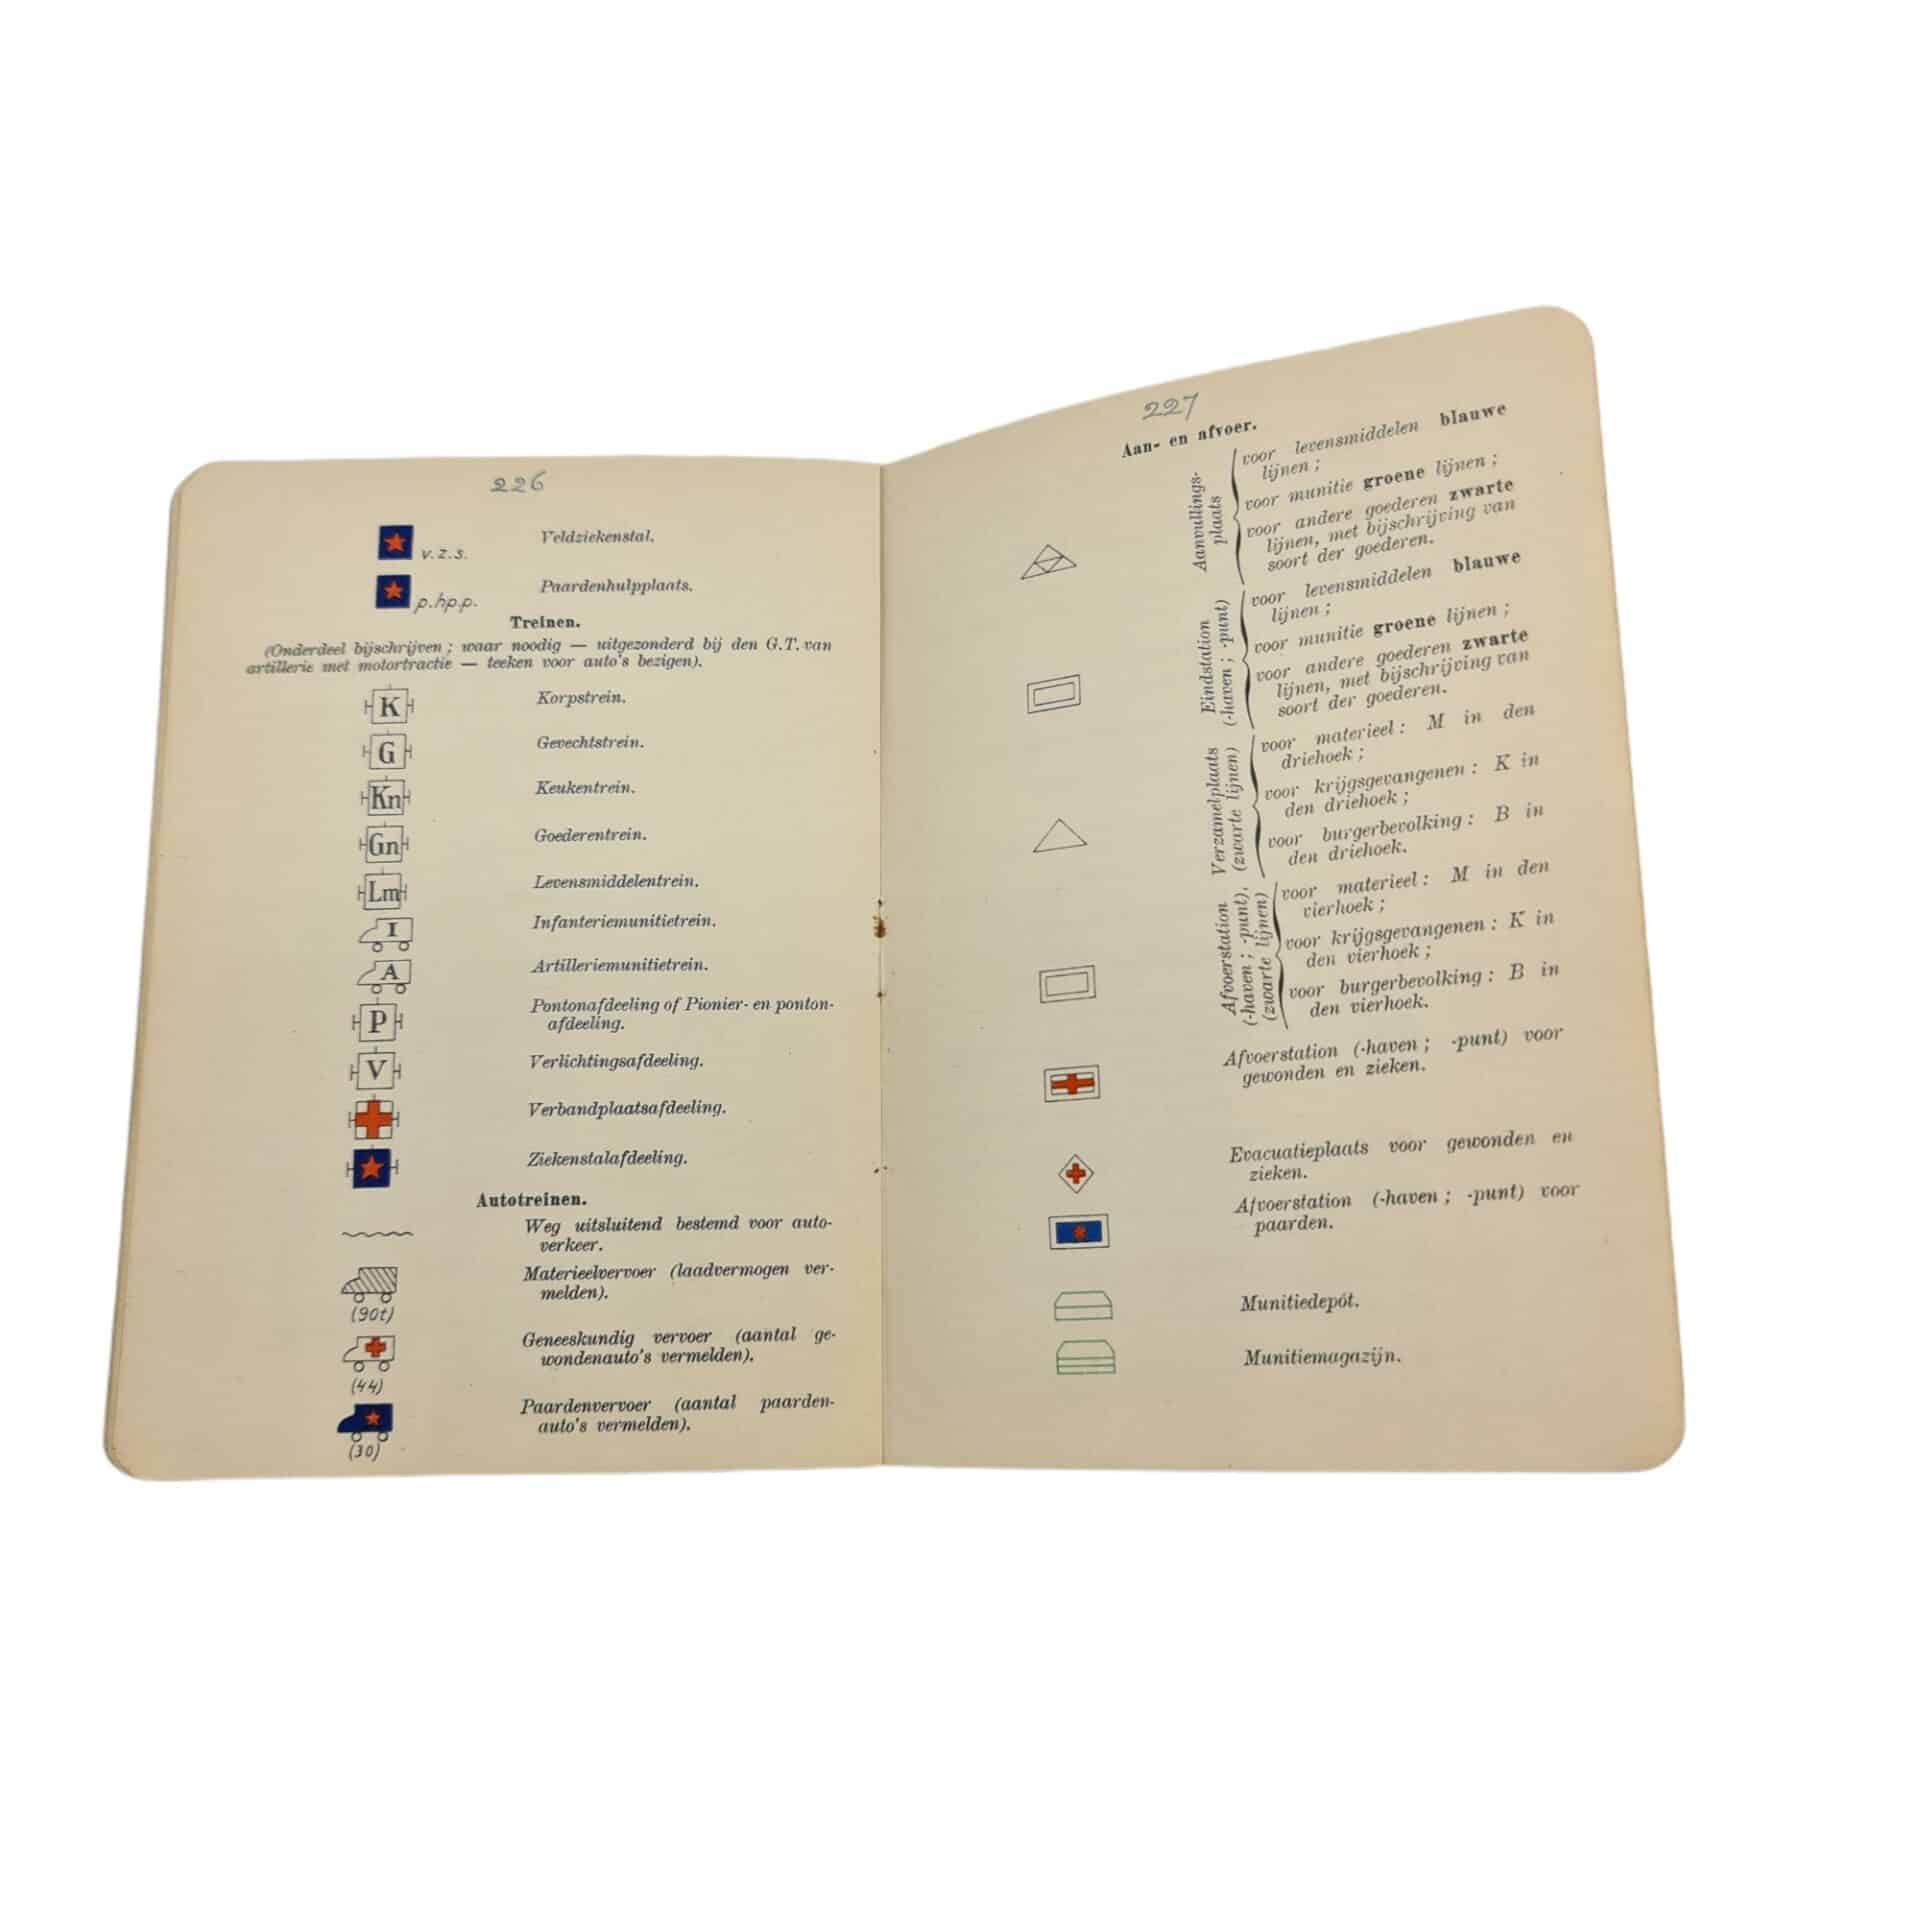 226
v.z.s. Veldziekenstal.
p.hp.p. Paardenhulpplaats.
Treinen.
(Onderdeel bijschrijven; waar noodig — uitgezonderd bij den G.T. van
artillerie met motortractie — teeken voor auto's bezigen).
K Korpstrein.
G Gevechtstrein.
Kn Keukentrein.
Gn Goederentrein.
Lm Levensmiddelentrein.
I Infanteriemunitietrein.
A Artilleriemunitietrein.
P Pontonafdeeling of Pionier- en ponton-
afdeeling.
V Verlichtingsafdeeling.
Verbandplaatsafdeeling.
Ziekenstalafdeeling.
Autotreinen.
Weg uitsluitend bestemd voor auto-
verkeer.
Materieelvervoer (laadvermogen ver-
melden).
(90t)
Geneeskundig vervoer (aantal ge-
wondenauto's vermelden).
(44)
Paardenvervoer (aantal paarden-
auto's vermelden).
(30)
227
Aan- en afvoer.
Aanvullings-
plaats
voor levensmiddelen blauwe
lijnen;
voor munitie groene lijnen;
voor andere goederen zwarte
lijnen, met bijschrijving van
soort der goederen.
Eindstation
(-haven; -punt)
voor levensmiddelen blauwe
lijnen;
voor munitie groene lijnen;
voor andere goederen zwarte
lijnen, met bijschrijving van
soort der goederen.
Verzamelplaats
(zwarte lijnen)
voor materieel: M in den
driehoek;
voor krijgsgevangenen: K in
den driehoek;
voor burgerbevolking: B in
den driehoek.
Afvoerstation
(-haven; -punt),
(zwarte lijnen)
voor materieel: M in den
vierhoek;
voor krijgsgevangenen: K in
den vierhoek;
voor burgerbevolking: B in
den vierhoek.
Afvoerstation (-haven; -punt) voor
gewonden en zieken.
Evacuatieplaats voor gewonden en
zieken.
Afvoerstation (-haven; -punt) voor
paarden.
Munitiedepôt.
Munitiemagazijn.